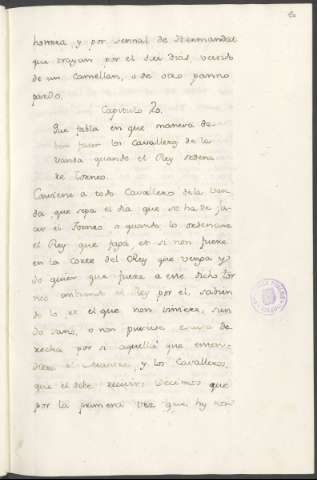 honrra, y por sennal de Hermandat
que trayan por el seis dias vestido
de un Camellan, o de otro panno
pardo.
Capitulo 20.
Que fabla en que manera de-
ben facer los Cavalleros de la
Vanda quando el Rey ordena-
re torneo.
Conviene a todo Cavallero de la Van-
da que sepa el dia que se ha de fa-
cer el Torneo o quando lo ordenare
el Rey que fagá et si non fuere
en la Corte del Rey que venga y
do quier que fuere a este dicho tor
neo embiando el Rey por el, sabien
do lo et el que non viniere, sien
do sano, o non
derecha por si aquella que
y los Cavalleros,
que el debe decimos que
por la primera vez que hy non